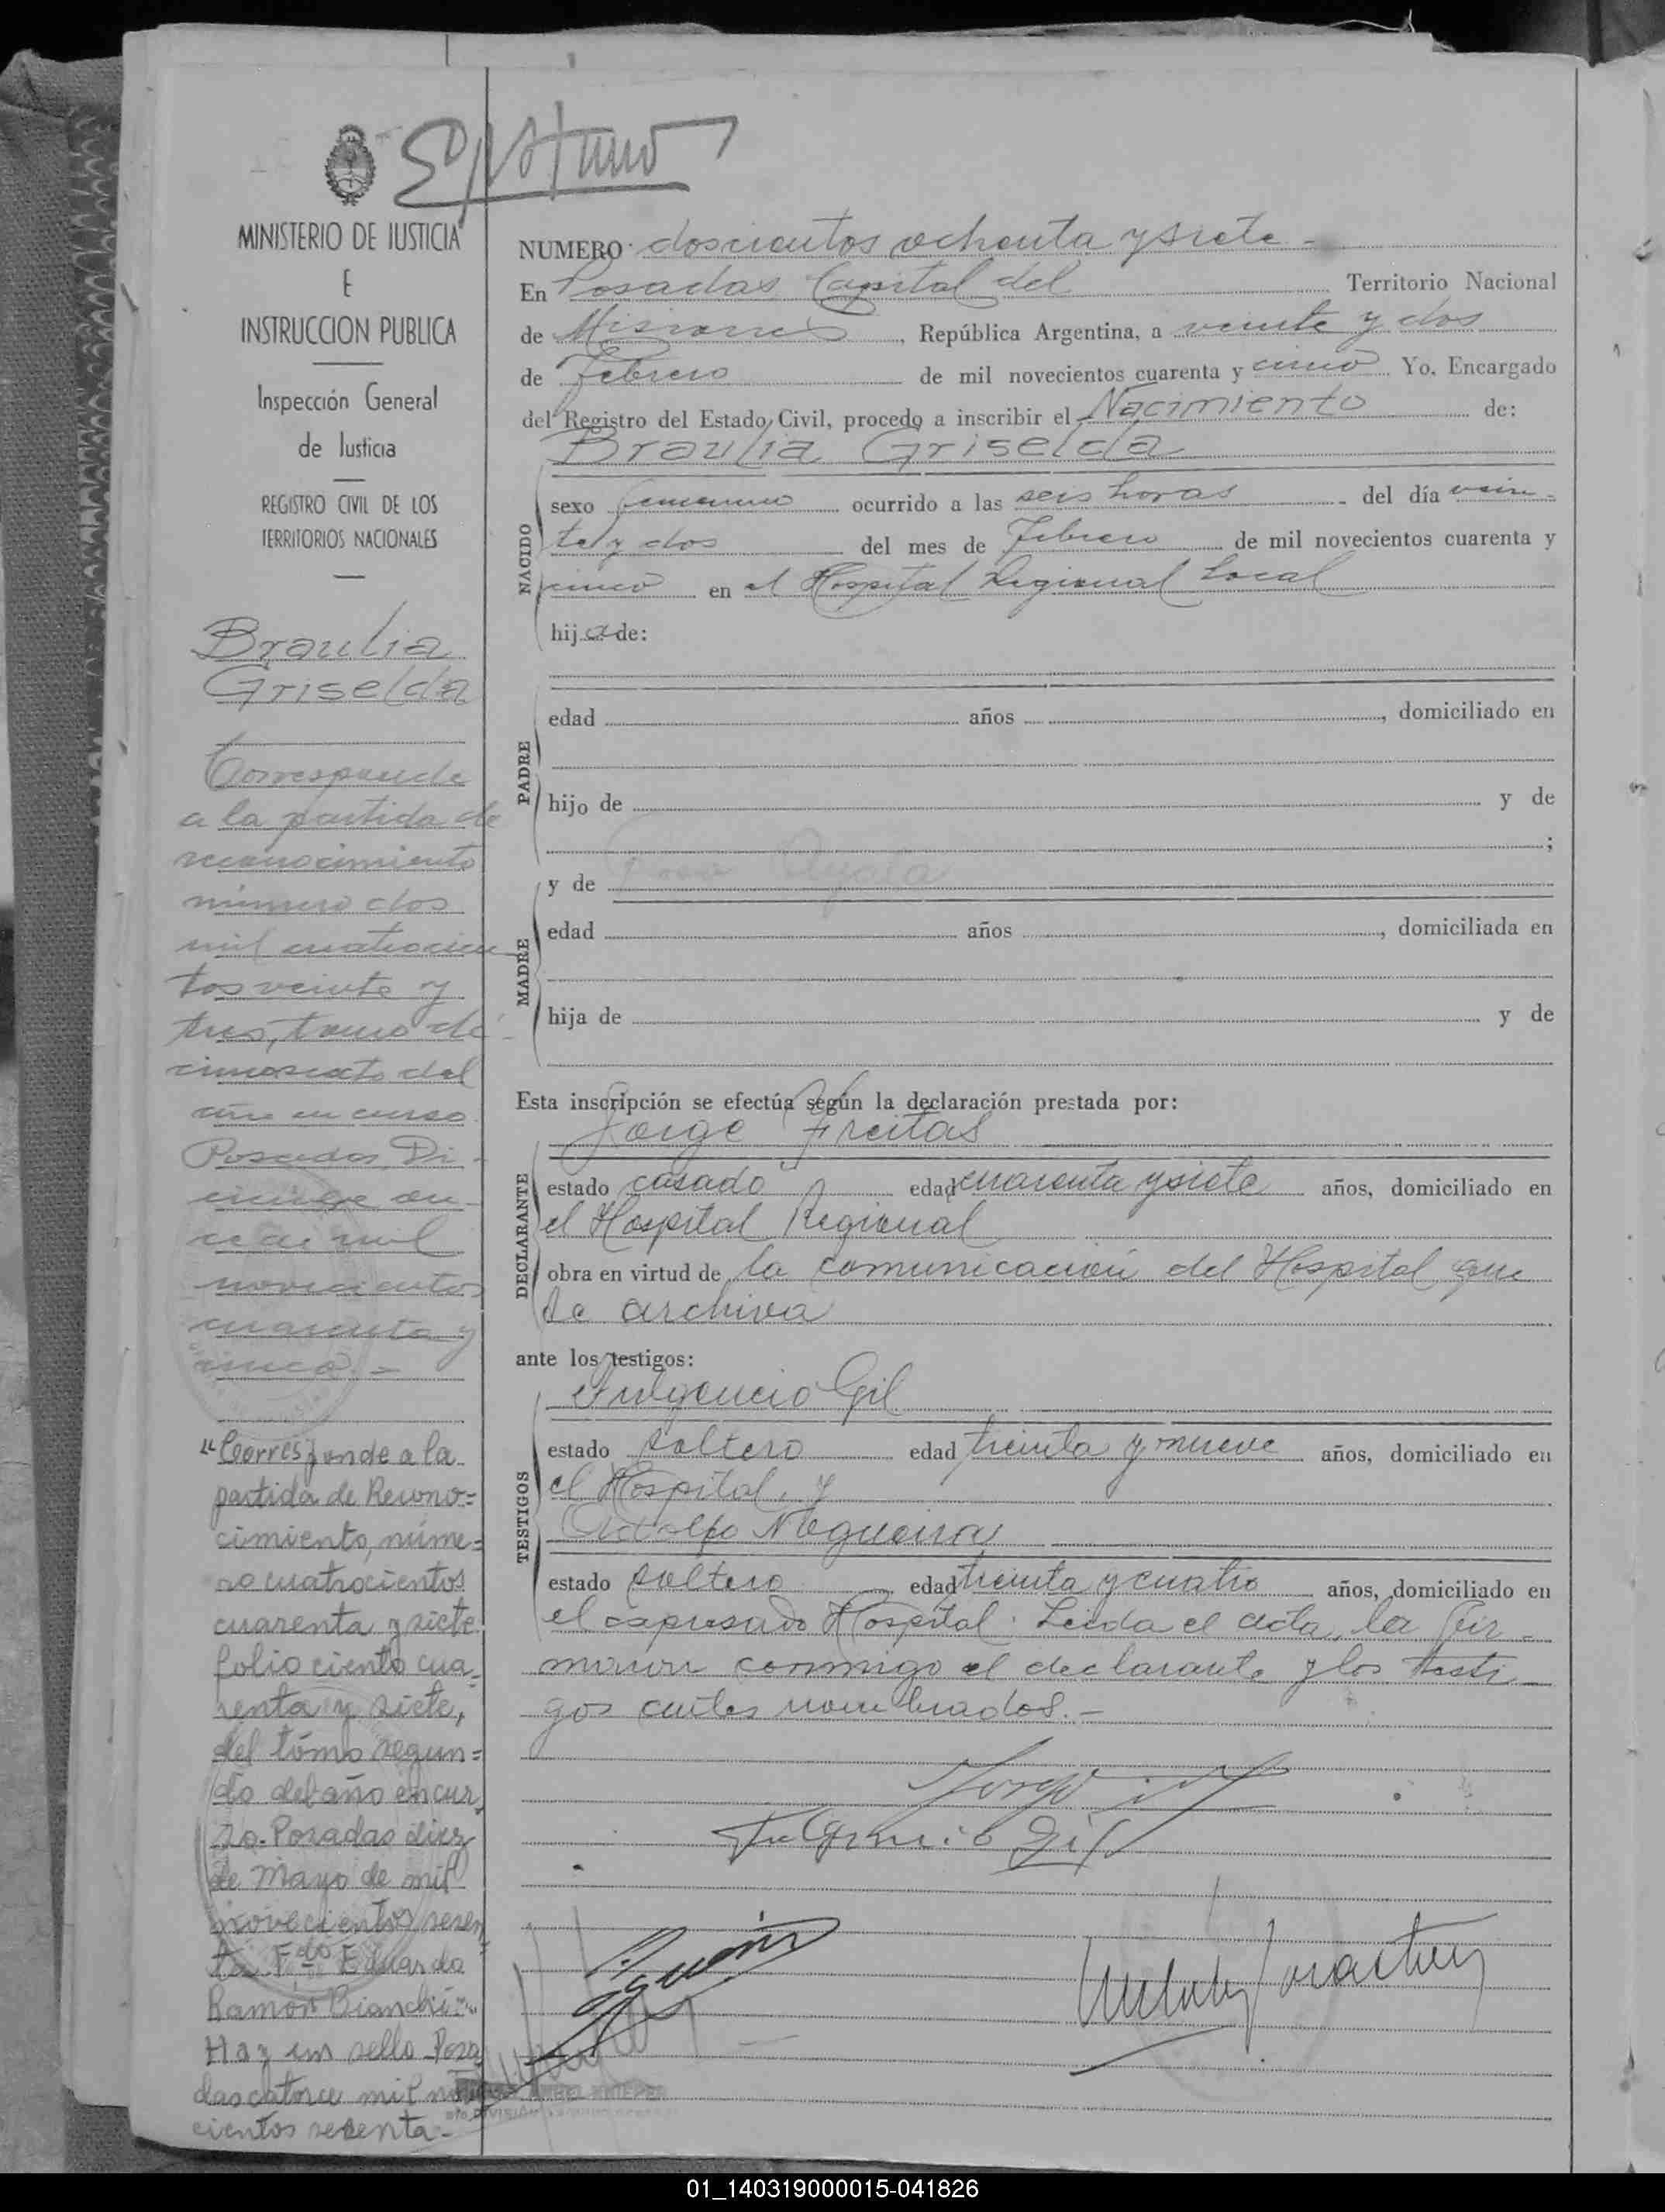 MINISTERIO DE JUSTICIA
E
INSTRUCCION PUBLICA
Inspección General
de Justicia
REGISTRO CIVIL DE LOS
TERRITORIOS NACIONALES
Braulia
Griselda
Corresponde
a la partida de
reconocimiento
número dos
mil cuatrocien
tos veinte y
tres, tomo dé
cimosexto del
año en curso
Posadas, Di
ciembre on
ce de mil
novecientos
cuarenta y
cinco. -
"Corresponde a la
partida de Recono=
cimiento, núme=
ro cuatrocientos
cuarenta y siete
folio ciento cua=
renta y siete,
del tómo segun=
do del año en cur
so. Posadas diez
de Mayo de mil
novecientos sesen
ta. Fdo Eduardo
Ramón Bianchi
Hay un sello. Posa
das catorce mil nove
cientos sesenta.-
NUMERO doscientos ochenta y siete -
En Posadas Capital del Territorio Nacional
de Misiones, República Argentina, a veinte y dos
de Febrero de mil novecientos cuarenta y cinco Yo, Encargado
del Registro del Estado Civil, procedo a inscribir el Nacimiento de:
Braulia Griselda
NACIDO
sexo femenino ocurrido a las seis horas - del día vein -
te y dos del mes de Febrero de mil novecientos cuarenta y
cinco en el Hospital Regional local
hija de:
PADRE
edad años , domiciliado en
hijo de y de
;
MADRE
y de Ayala
edad años , domiciliada en
hija de y de
Esta inscripción se efectúa según la declaración prestada por:
Jorge Freitas
DECLARANTE
estado casado edad cuarenta y siete años, domiciliado en
el Hospital Regional
obra en virtud de la comunicación del Hospital que
se archiva
ante los testigos:
Fulgencio Gil
TESTIGOS
estado soltero edad treinta y nueve años, domiciliado en
el Hospital, y
Adolfo Nogueira
estado soltero edad treinta y cuatro años, domiciliado en
el expresado Hospital. Leida el acta, la fir -
maron conmigo el declarante y los testi
gos antes nombrados. -
Fulgencio Gil
01_140319000015-041826